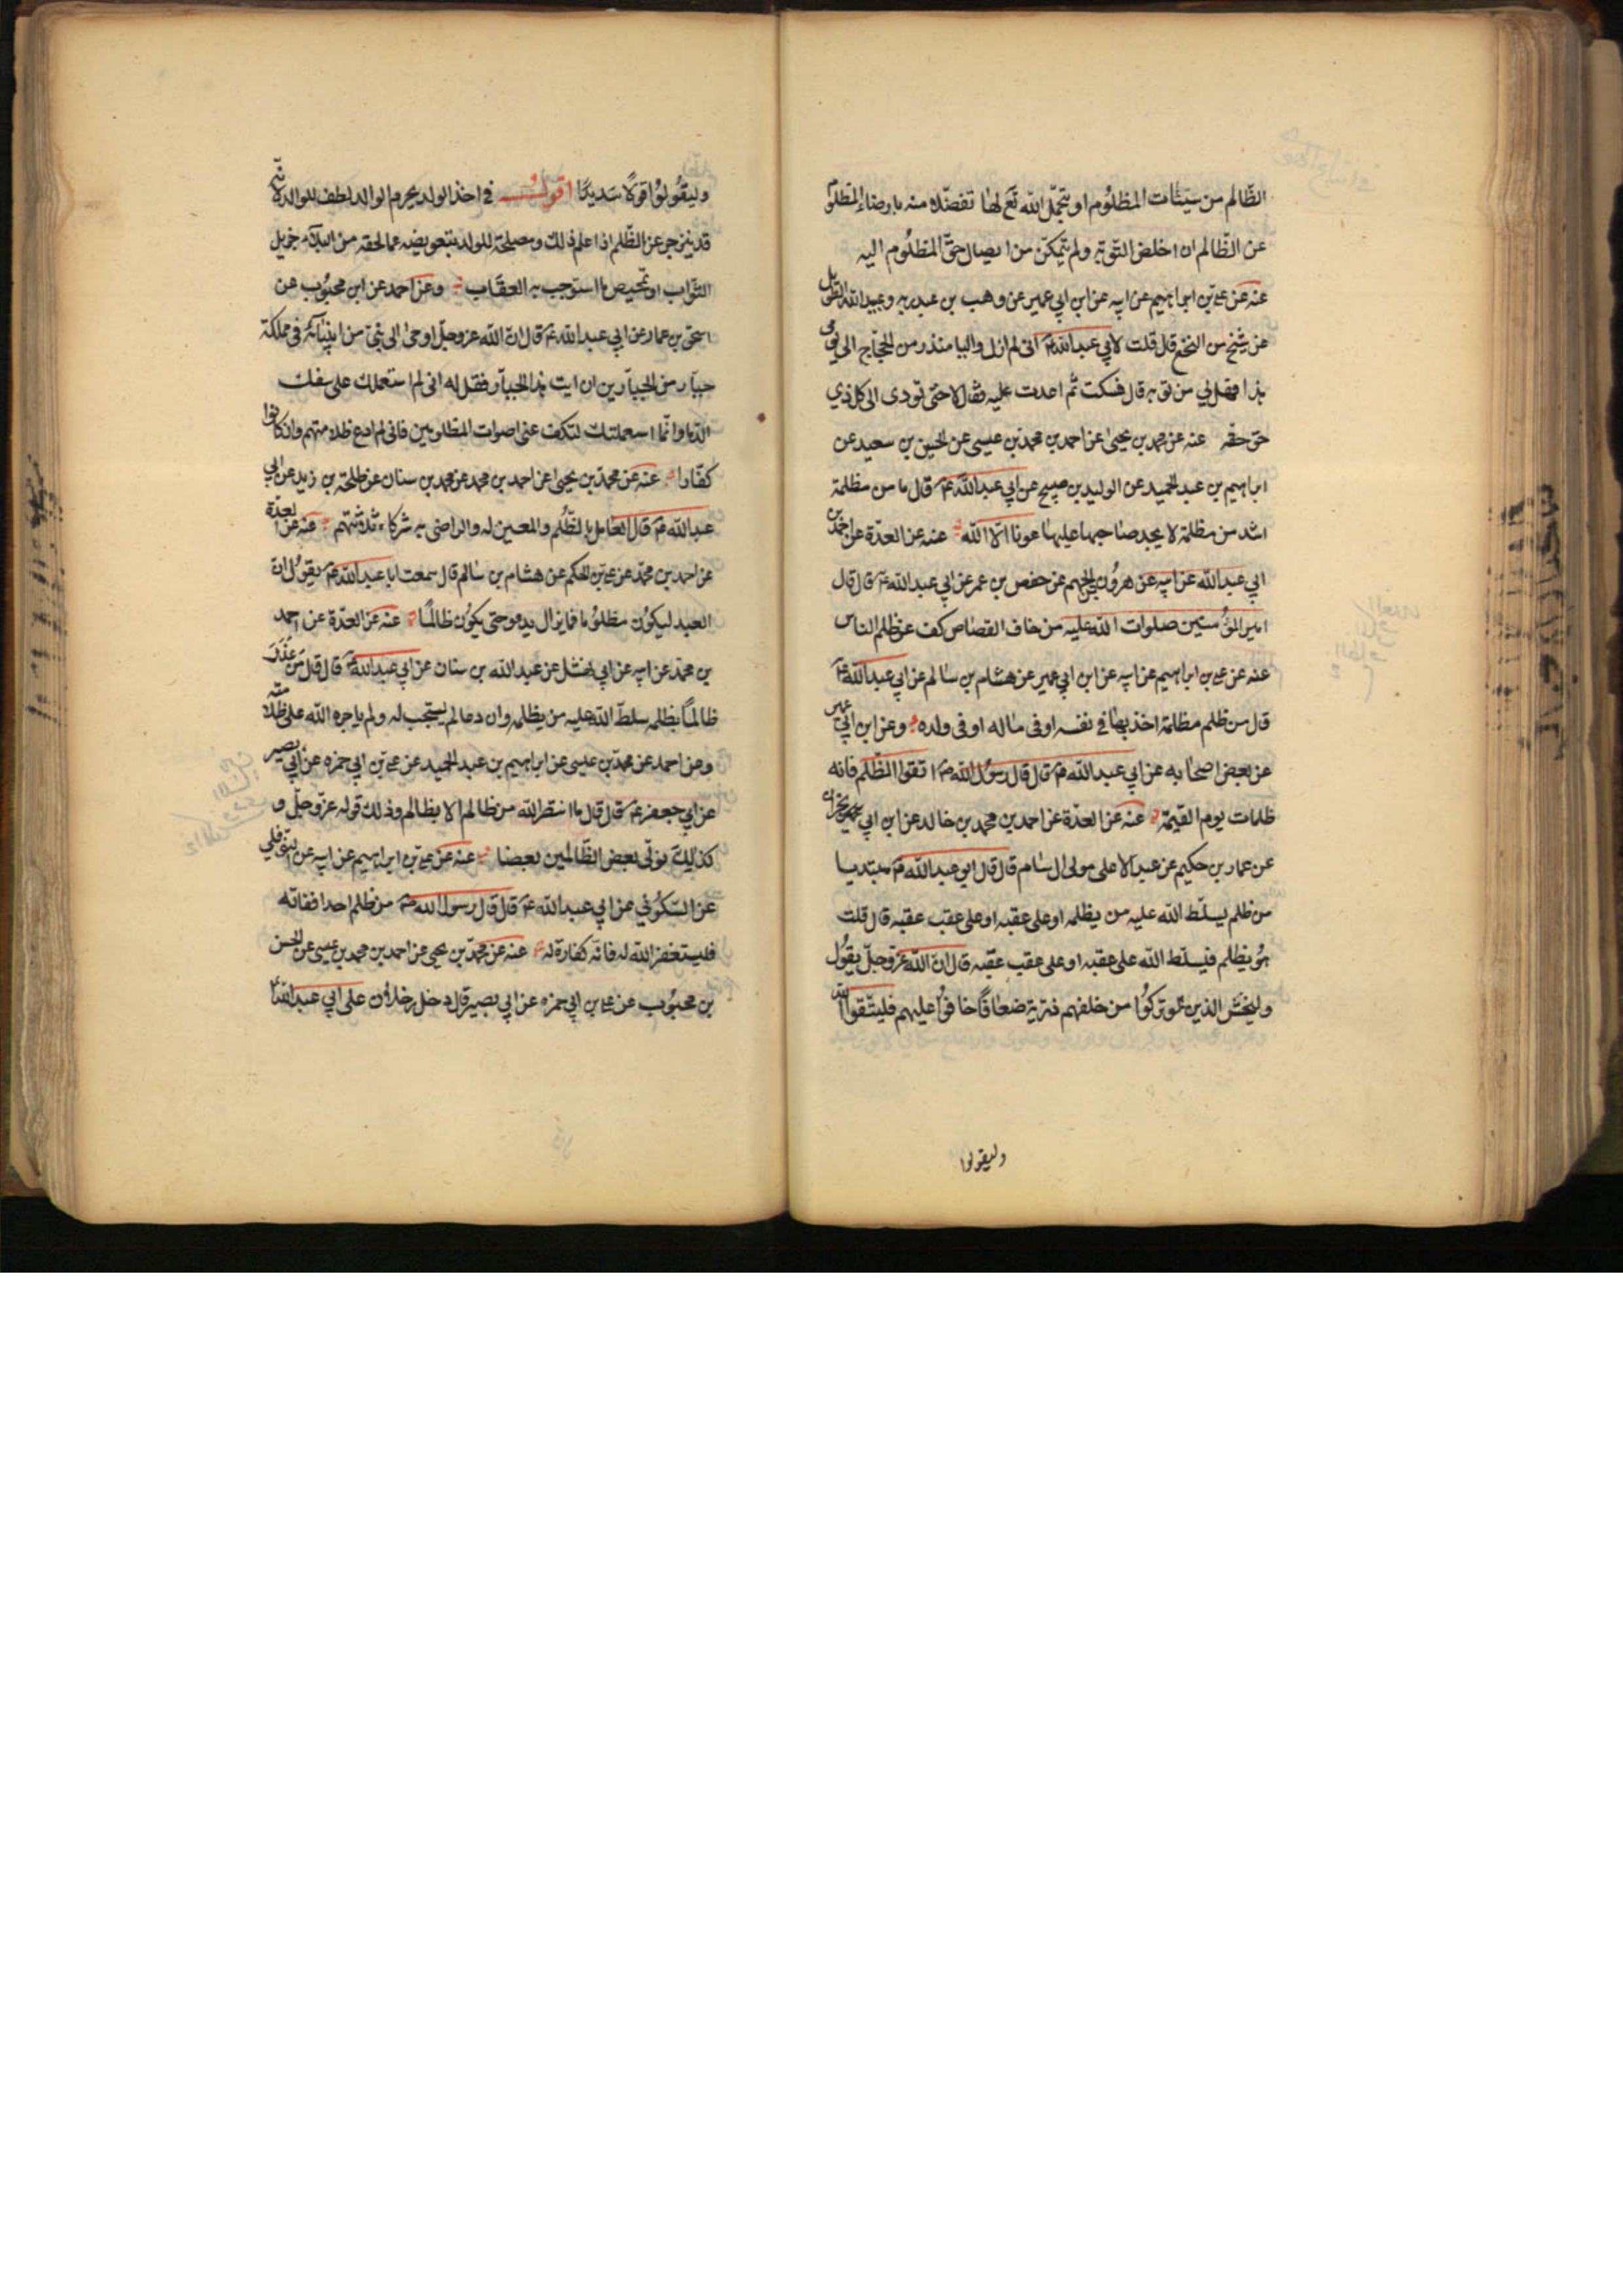 الظالم من سيئات المظلوم او يتحمل الله تع لها تفضلا منه بارضاء المظلوم
عن الظالم ان اخلص التوبة ولم يتمكن من ايصال حق المظلوم اليه
عنه عن علي بن ابراهيم عن ابيه عن ابن ابي عمير عن وهب بن عبد ربه وعبيد الله الطويل
عن شيخ من النخع قال قلت لابي عبد الله ع اني لم ازل واليا منذ زمن الحجاج الى يومي
هذا فهل لي من توبة قال فسكت ثم اعدت عليه فقال لا حتى تودى الى كل ذي
حق حقه عنه عن محمد بن يحيى عن احمد بن محمد بن عيسى عن الحسين بن سعيد عن
ابراهيم بن عبد الحميد عن الوليد بن صبيح عن ابي عبد الله ع قال ما من مظلمة
اشد من مظلمة لا يجد صاحبها عليها عونا الا الله عنه عن العدة عن احمد بن
ابي عبد الله عن ابيه عن هرون بن الجهم عن حفص بن عمر عن ابي عبد الله ع قال قال
امير المؤمنين صلوات الله عليه من خاف القصاص كف عن ظلم الناس
عنه عن علي بن ابراهيم عن ابيه عن ابن ابي عمير عن هشام بن سالم عن ابي عبد الله ع
قال من ظلم مظلمة اخذ بها في نفسه او في ماله او في ولده وعن ابن ابي عمير
عن بعض اصحابه عن ابي عبد الله ع قال قال رسول الله ص اتقوا الظلم فانه
ظلمات يوم القيمة عنه عن العدة عن احمد بن محمد بن خالد عن ابن ابي نجران
عن عمار بن حكيم عن عبد الاعلى مولى ال سام قال قال ابو عبد الله ع مبتديا
من ظلم يسلط الله عليه من يظلمه او على عقبه او على عقب عقبه قال قلت
هو يظلم فيسلط الله على عقبه او على عقب عقبه قال ان الله عز وجل يقول
وليخش الذين لو تركوا من خلفهم ذرية ضعافا خافوا عليهم فليتقوا الله
وليقولوا
وليقولوا قولا سديدا اقول في اخذ الولد بجرم الوالد لطف للوالد لانه
قد ينزجر عن الظلم اذا علم ذلك ومصلحة للولد بتعويضه عما لحقه من البلاء جزيل
الثواب او تمحيص ما استوجب به العقاب وعن احمد عن ابن محبوب عن
اسحق بن عمار عن ابي عبد الله ع قال ان الله عز وجل اوحى الى نبي من انبيائه في مملكة
جبار من الجبارين ان ايت هذا الجبار فقل له اني لم استعملك على سفك
الدما وانما استعملتك لتكف عني اصوات المظلومين فاني لم ادع ظلامتهم وان كانوا
كفارا عنه عن محمد بن يحيى عن احمد بن محمد عن محمد بن سنان عن طلحة بن زيد عن ابي
عبد الله ع قال العامل بالظلم والمعين له والراضي به شركاء ثلاثتهم عنه عن العدة
عن احمد بن محمد عن علي بن الحكم عن هشام بن سالم قال سمعت ابا عبد الله ع يقول ان
العبد ليكون مظلوما فما يزال يدعو حتى يكون ظالما عنه عن العدة عن احمد
بن محمد عن ابيه عن ابي نهشل عن عبد الله بن سنان عن ابي عبد الله ع قال قال من عذر
ظالما بظلمه سلط الله عليه من يظلمه وان دعا لم يستجب له ولم ياجره الله على ظلامته
وعن احمد عن محمد بن عيسى عن ابراهيم بن عبد الحميد عن علي بن ابي حمزه عن ابي بصير
عن ابي جعفر ع قال قال ما انتصر الله من ظالم الا بظالم وذلك قوله عز وجل و
كذلك نولي بعض الظالمين بعضا عنه عن علي بن ابراهيم عن ابيه عن النوفلي
عن السكوني عن ابي عبد الله ع قال قال رسول الله ص من ظلم احدا ففاته
فليستغفر الله له فانه كفارة له عنه عن محمد بن يحيى عن احمد بن محمد بن عيسى عن الحسن
بن محبوب عن علي بن ابي حمزه عن ابي بصير قال دخل رجلان على ابي عبد الله ع